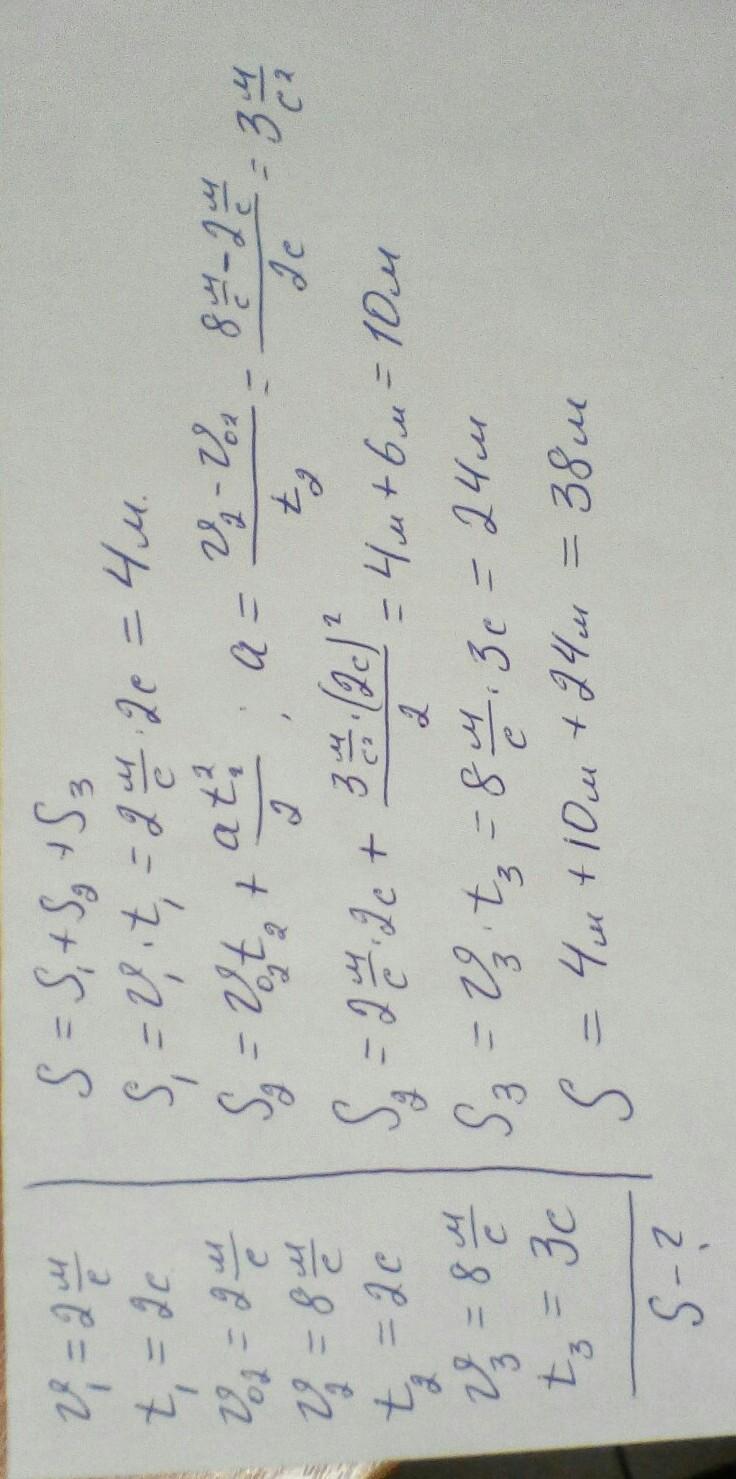 υ₁ = 2 м/с
t₁ = 2с
υ₀₂ = 2 м/с
υ₂ = 8 м/с
t₂ = 2с
υ₃ = 8 м/с
t₃ = 3с
S - ?
S = S₁ + S₂ + S₃
S₁ = υ₁ · t₁ = 2 м/с · 2с = 4м.
S₂ = υ₀₂t₂ + at₂²/2 , a = (υ₂ - υ₀₂)/t₂ = (8 м/с - 2 м/с)/2с = 3 м/с²
S₂ = 2 м/с · 2с + (3 м/с² · (2с)²)/2 = 4м + 6м = 10м
S₃ = υ₃ · t₃ = 8 м/с · 3с = 24м
S = 4м + 10м + 24м = 38м